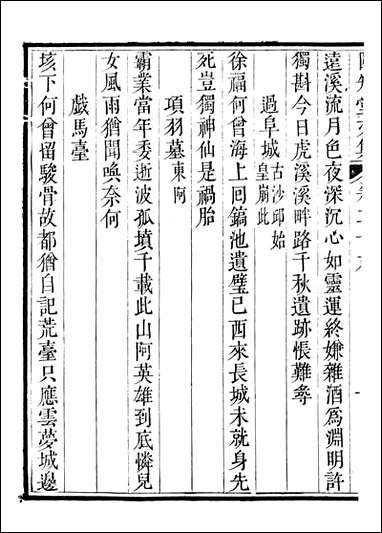 遠溪流月色夜深沉心如靈運終嫌雜酒爲淵明許
獨斟今日虎溪溪畔路千秋遺跡悵難尋
過阜城古沙邱始皇崩此
徐福何曾海上回鎬池遺璧已西來長城未就身先
死豈獨神仙是禍胎
項羽墓東阿
霸業當年委逝波孤墳千載此山阿英雄到底憐兒
女風雨猶聞喚奈何
戲馬臺
垓下何曾留駿骨故都猶自記荒臺只應雲夢城邊